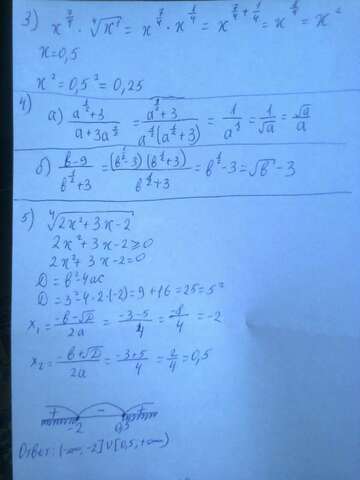 3) x^{7/4} · ∜x² = x^{7/4} · x^{1/4} = x^{7/4 + 1/4} = x^{8/4} = x²
x = 0,5
x² = 0,5² = 0,25
4)
а) (a^{1/2}+3)/(a+3a^{1/2}) = (a^{1/2}+3)/(a^{1/2}(a^{1/2}+3)) = 1/a^{1/2} = 1/√a = √a/a
б) (в-9)/(в^{1/2}+3) = (в^{1/2}-3)(в^{1/2}+3)/(в^{1/2}+3) = в^{1/2}-3 = √в - 3
5) ∜(2x²+3x-2)
2x²+3x-2≥0
2x²+3x-2=0
D = в²-4ac
D = 3²-4·2·(-2) = 9+16 = 25 = 5²
x₁ = (-в-√D)/2a = (-3-5)/4 = -8/4 = -2
x₂ = (-в+√D)/2a = (-3+5)/4 = 2/4 = 0,5
+ - +
-2 0,5
Ответ: (-∞, -2]∪[0,5, +∞)